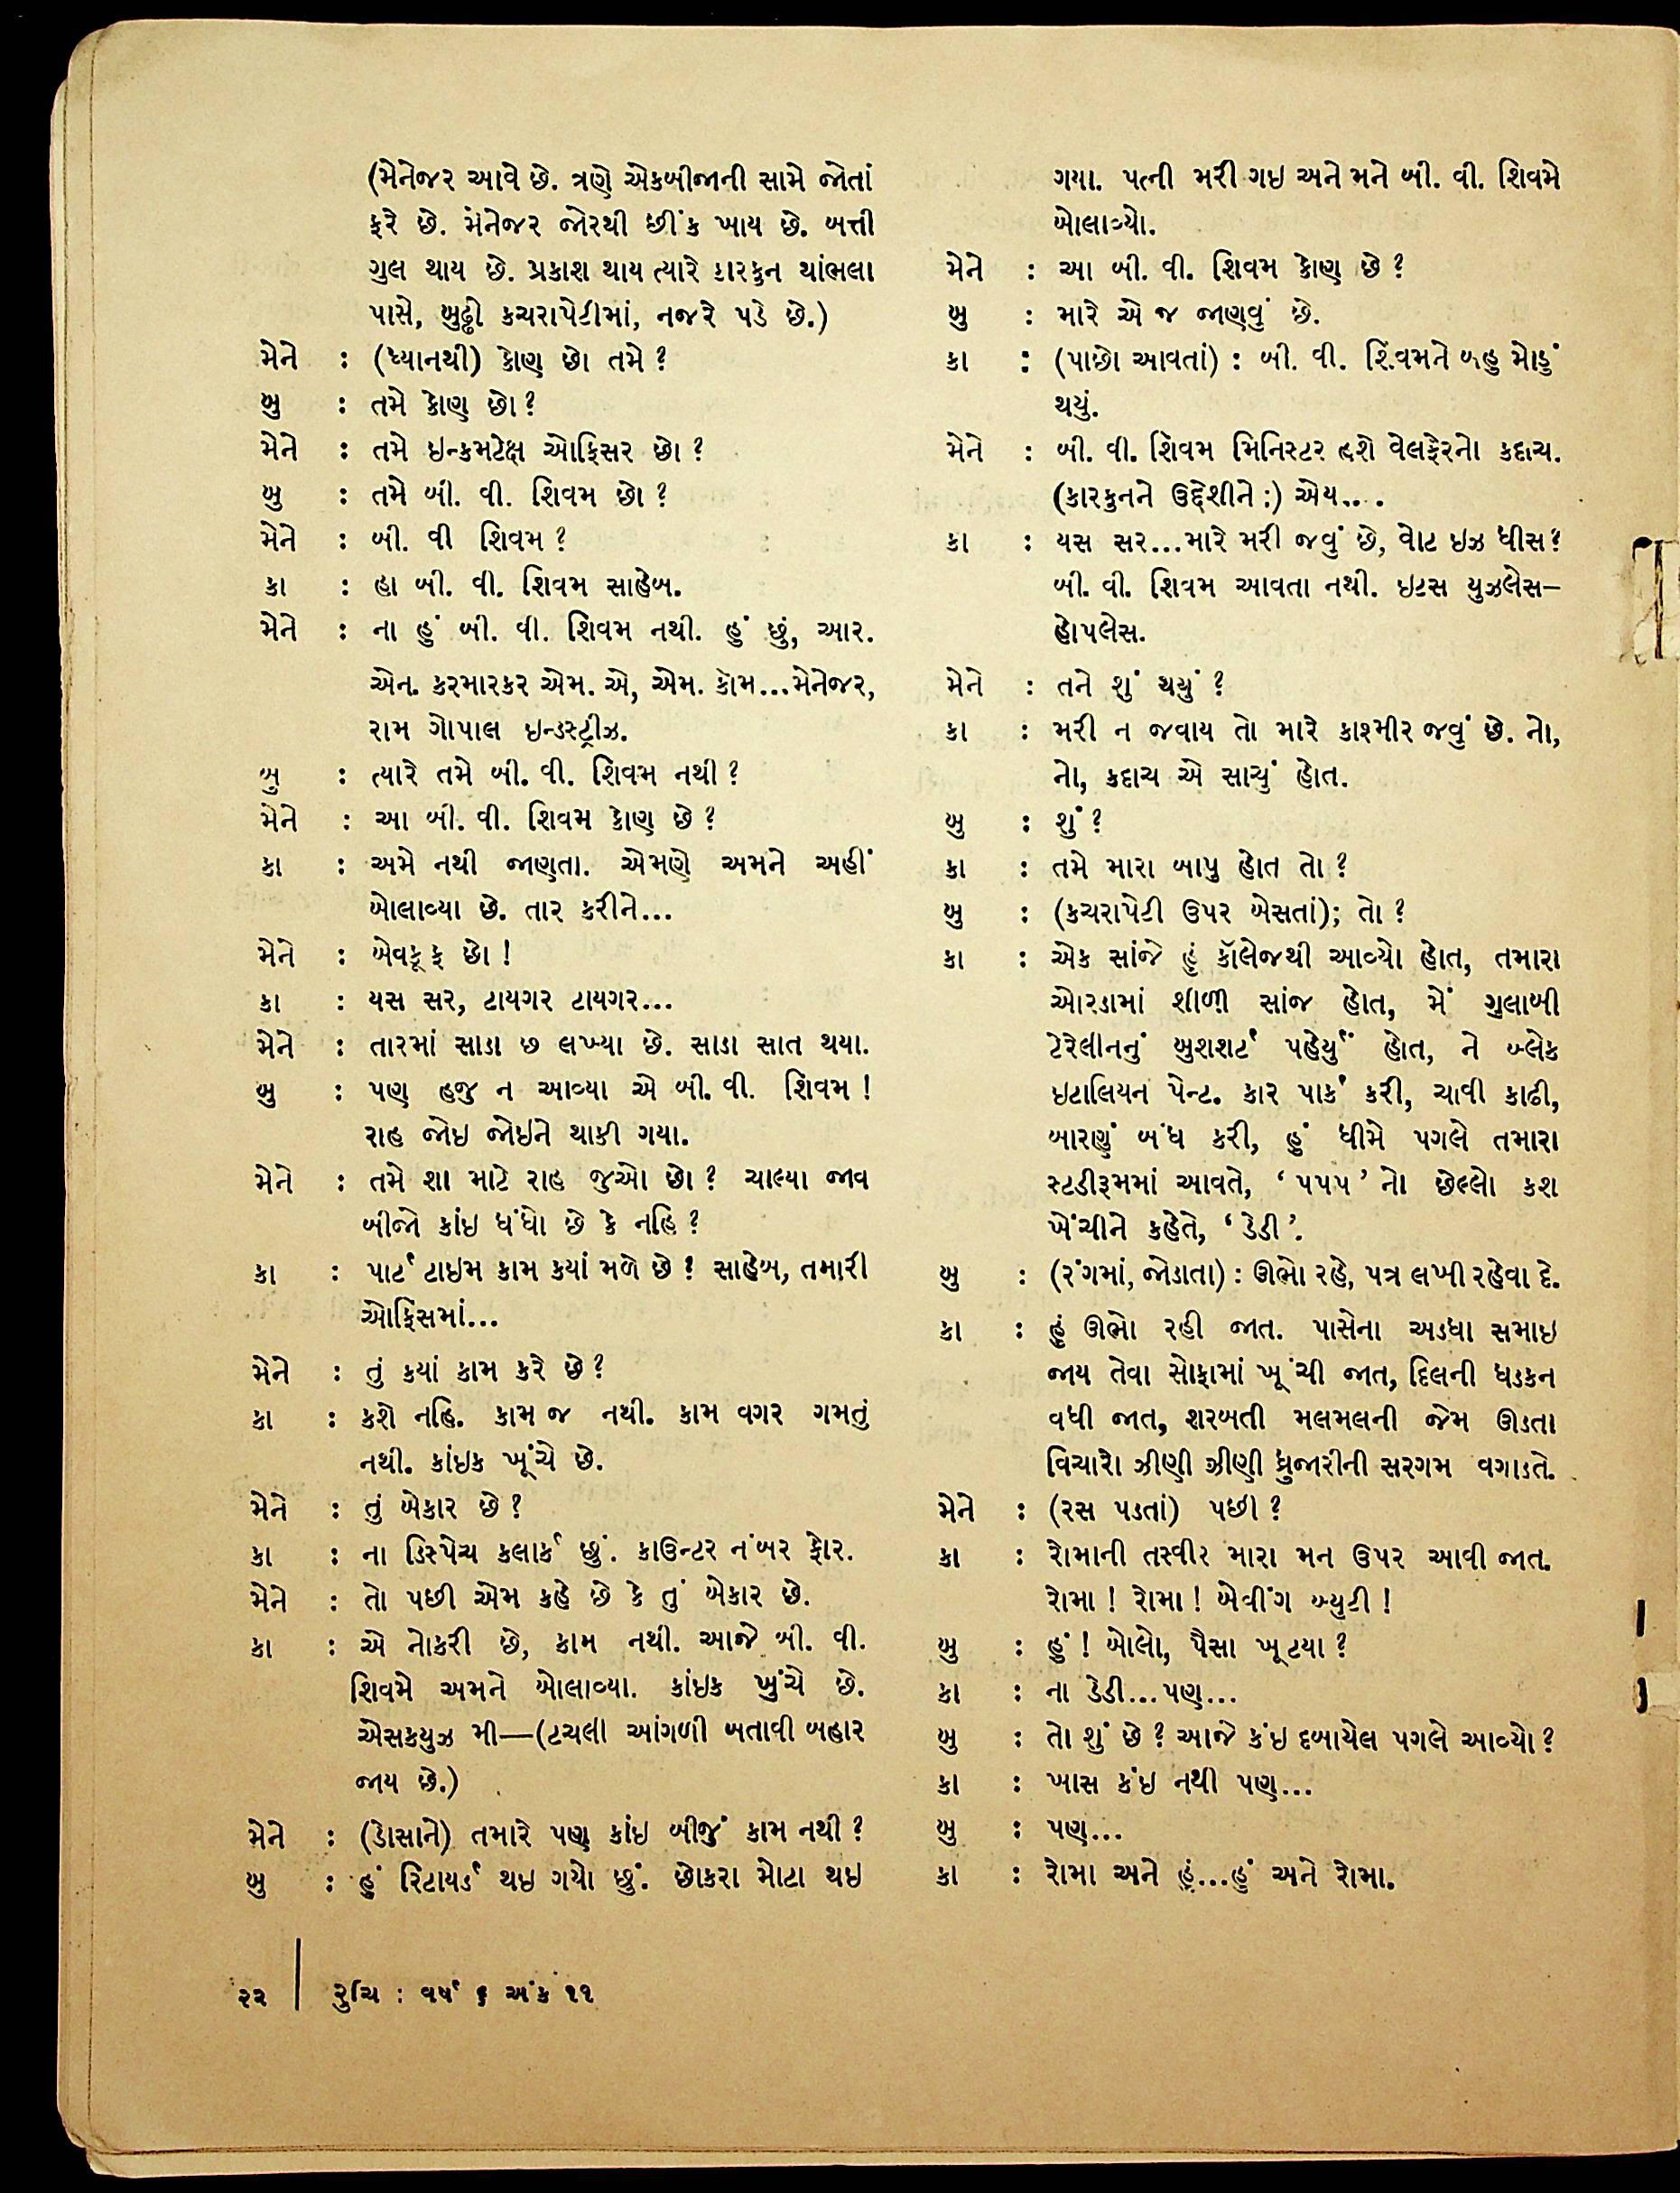 (મેનેજર આવે છે. ત્રણે એકબીજાની સામે જોતાં
ફરે છે. મેનેજર જોરથી છીંક ખાય છે. બત્તી
ગુલ થાય છે. પ્રકાશ થાય ત્યારે કારકુન થાંભલા
પાસે, બુઢ્ઢો કચરાપેટીમાં, નજરે પડે છે.)
મેને : (ધ્યાનથી) કોણ છો તમે ?
બુ : તમે કોણ છો ?
મેને : તમે ઇન્કમટેક્ષ ઓફિસર છો ?
બુ : તમે બી. વી. શિવમ છો ?
મેને : બી. વી શિવમ ?
કા : હા બી. વી. શિવમ સાહેબ.
મેને : ના હું બી. વી. શિવમ નથી. હું છું, આર.
એન. કરમારકર એમ. એ, એમ. કોમ...મેનેજર,
રામ ગોપાલ ઇન્ડસ્ટ્રીઝ.
બુ : ત્યારે તમે બી. વી. શિવમ નથી ?
મેને : આ બી. વી. શિવમ કોણ છે ?
કા : અમે નથી જાણતા. એમણે અમને અહીં
બોલાવ્યા છે. તાર કરીને...
મેને : બેવકૂફ છો !
કા : યસ સર, ટાયગર ટાયગર...
મેને : તારમાં સાડા છ લખ્યા છે. સાડા સાત થયા.
બુ : પણ હજુ ન આવ્યા એ બી. વી. શિવમ !
રાહ જોઇ જોઇને થાકી ગયા.
મેને : તમે શા માટે રાહ જુઓ છો ? ચાલ્યા જાવ
બીજો કાંઇ ધંધો છે કે નહિ ?
કા : પાર્ટ ટાઇમ કામ કયાં મળે છે ! સાહેબ, તમારી
ઓફિસમાં...
મેને : તું કયાં કામ કરે છે ?
કા : કશે નહિ. કામ જ નથી. કામ વગર ગમતું
નથી. કાંઇક ખૂંચે છે.
મેને : તું બેકાર છે ?
કા : ના ડિસ્પેચ કલાર્ક છું. કાઉન્ટર નંબર ફોર.
મેને : તો પછી એમ કહે છે કે તું બેકાર છે.
કા : એ નોકરી છે, કામ નથી. આજે બી. વી.
શિવમે અમને બોલાવ્યા. કાંઇક ખુંચે છે.
એસકયુઝ મી—(ટચલી આંગળી બતાવી બહાર
જાય છે.)
મેને : (ડોસાને) તમારે પણ કાંઇ બીજું કામ નથી ?
બુ : હું રિટાયર્ડ થઇ ગયો છું. છોકરા મોટા થઇ
ગયા. પત્ની મરી ગઇ અને મને બી. વી. શિવમે
બોલાવ્યો.
મેને : આ બી. વી. શિવમ કોણ છે ?
બુ : મારે એ જ જાણવું છે.
કા : (પાછો આવતાં) : બી. વી. શિવમને બહુ મોડું
થયું.
મેને : બી. વી. શિવમ મિનિસ્ટર હશે વેલફેરનો કદાચ.
(કારકુનને ઉદ્દેશીને :) એય....
કા : યસ સર...મારે મરી જવું છે, વોટ ઇઝ ધીસ ?
બી. વી. શિવમ આવતા નથી. ઇટસ યુઝલેસ–
હોપલેસ.
મેને : તને શું થયું ?
કા : મરી ન જવાય તો મારે કાશ્મીર જવું છે. નો,
નો, કદાચ એ સાચું હોત.
બુ : શું ?
કા : તમે મારા બાપુ હોત તો ?
બુ : (કચરાપેટી ઉપર બેસતાં); તો ?
કા : એક સાંજે હું કૉલેજથી આવ્યો હોત, તમારા
ઓરડામાં શીળી સાંજ હોત, મેં ગુલાબી
ટેરેલીનનું બુશશર્ટ પહેર્યું હોત, ને બ્લેક
ઇટાલિયન પેન્ટ. કાર પાર્ક કરી, ચાવી કાઢી,
બારણું બંધ કરી, હું ધીમે પગલે તમારા
સ્ટડીરૂમમાં આવતે, ‘ ૫૫૫ ’ નો છેલ્લો કશ
ખેંચીને કહેતે, ‘ ડેડી ’.
બુ : (રંગમાં, જોડાતા) : ઊભો રહે, પત્ર લખી રહેવા દે.
કા : હું ઊભો રહી જાત. પાસેના અડધા સમાઇ
જાય તેવા સોફામાં ખૂંચી જાત, દિલની ધડકન
વધી જાત, શરબતી મલમલની જેમ ઊડતા
વિચારો ઝીણી ઝીણી ધ્રુજારીની સરગમ વગાડતે.
મેને : (રસ પડતાં) પછી ?
કા : રોમાની તસ્વીર મારા મન ઉપર આવી જાત.
રોમા ! રોમા ! બેવીંગ બ્યુટી !
બુ : હું ! બોલો, પૈસા ખૂટયા ?
કા : ના ડેડી...પણ...
બુ : તો શું છે ? આજે કંઇ દબાયેલ પગલે આવ્યો ?
કા : ખાસ કંઇ નથી પણ...
બુ : પણ...
કા : રોમા અને હું...હું અને રોમા.
૨૨ | રુચિ : વર્ષ ૬ અંક ૧૧